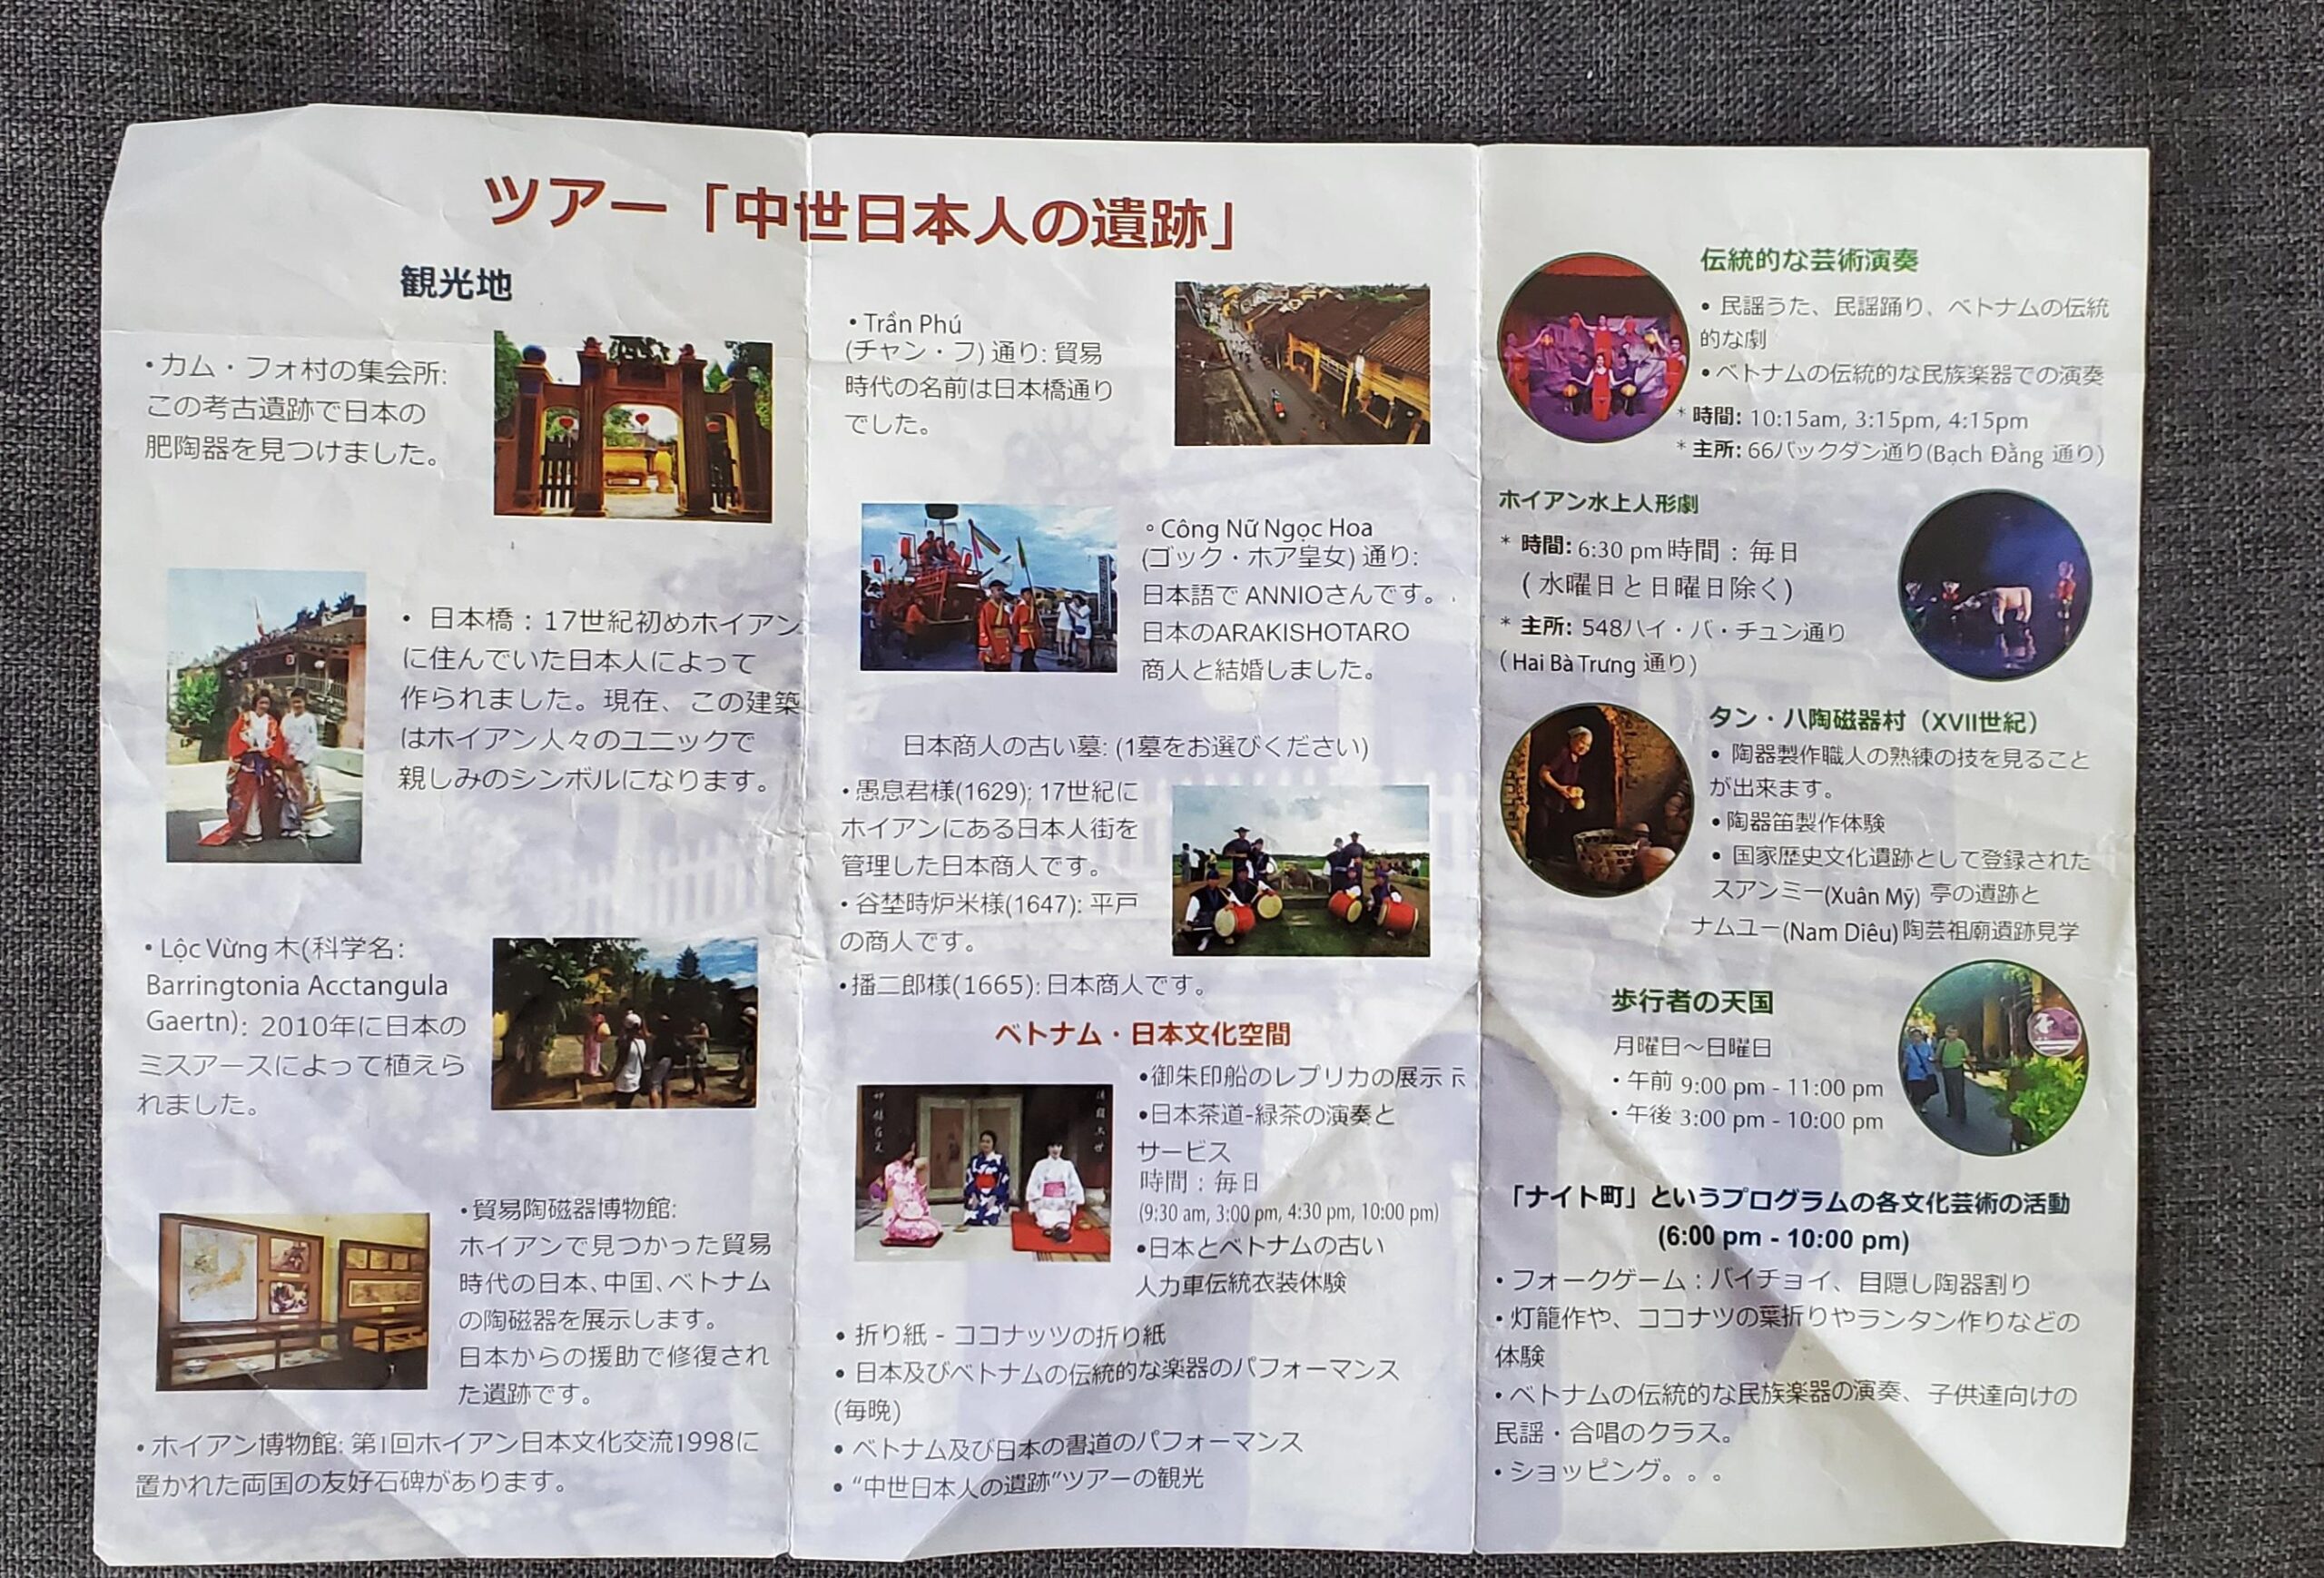 ツアー「中世日本人の遺跡」
観光地
•カム・フォ村の集会所:
この考古遺跡で日本の
肥陶器を見つけました。
• 日本橋：17世紀初めホイアン
に住んでいた日本人によって
作られました。現在、この建築
はホイアン人々のユニックで
親しみのシンボルになります。
• Lộc Vừng 木(科学名:
Barringtonia Acctangula
Gaertn): 2010年に日本の
ミスアースによって植えら
れました。
•貿易陶磁器博物館:
ホイアンで見つかった貿易
時代の日本、中国、ベトナム
の陶磁器を展示します。
日本からの援助で修復され
た遺跡です。
•ホイアン博物館: 第1回ホイアン日本文化交流1998に
置かれた両国の友好石碑があります。
• Trần Phú
(チャン・フ) 通り: 貿易
時代の名前は日本橋通り
でした。
◦ Công Nữ Ngọc Hoa
(ゴック・ホア皇女) 通り:
日本語で ANNIOさんです。
日本のARAKISHOTARO
商人と結婚しました。
日本商人の古い墓: (1墓をお選びください)
•愚息君様(1629): 17世紀に
ホイアンにある日本人街を
管理した日本商人です。
• 谷埜時炉米様(1647): 平戸
の商人です。
•播二郎様(1665): 日本商人です。
ベトナム・日本文化空間
•御朱印船のレプリカの展示
•日本茶道-緑茶の演奏と
サービス
時間：毎日
(9:30 am, 3:00 pm, 4:30 pm, 10:00 pm)
•日本とベトナムの古い
人力車伝統衣装体験
• 折り紙 - ココナッツの折り紙
• 日本及びベトナムの伝統的な楽器のパフォーマンス
(毎晩)
• ベトナム及び日本の書道のパフォーマンス
• “中世日本人の遺跡”ツアーの観光
伝統的な芸術演奏
• 民謡うた、民謡踊り、ベトナムの伝統
的な劇
•ベトナムの伝統的な民族楽器での演奏
* 時間: 10:15am, 3:15pm, 4:15pm
* 主所: 66バックダン通り(Bạch Đằng 通り)
ホイアン水上人形劇
* 時間: 6:30 pm 時間：毎日
(水曜日と日曜日除く)
* 主所: 548ハイ・バ・チュン通り
(Hai Bà Trưng 通り)
タン・ハ陶磁器村（XVII世紀）
• 陶器製作職人の熟練の技を見ること
が出来ます。
•陶器笛製作体験
• 国家歴史文化遺跡として登録された
スアンミー(Xuân Mỹ) 亭の遺跡と
ナムユー(Nam Diêu)陶芸祖廟遺跡見学
歩行者の天国
月曜日～日曜日
• 午前 9:00 pm - 11:00 pm
• 午後 3:00 pm - 10:00 pm
「ナイト町」というプログラムの各文化芸術の活動
(6:00 pm - 10:00 pm)
• フォークゲーム：バイチョイ、目隠し陶器割り
•灯籠作や、ココナツの葉折りやランタン作りなどの
体験
•ベトナムの伝統的な民族楽器の演奏、子供達向けの
民謡・合唱のクラス。
•ショッピング。。。